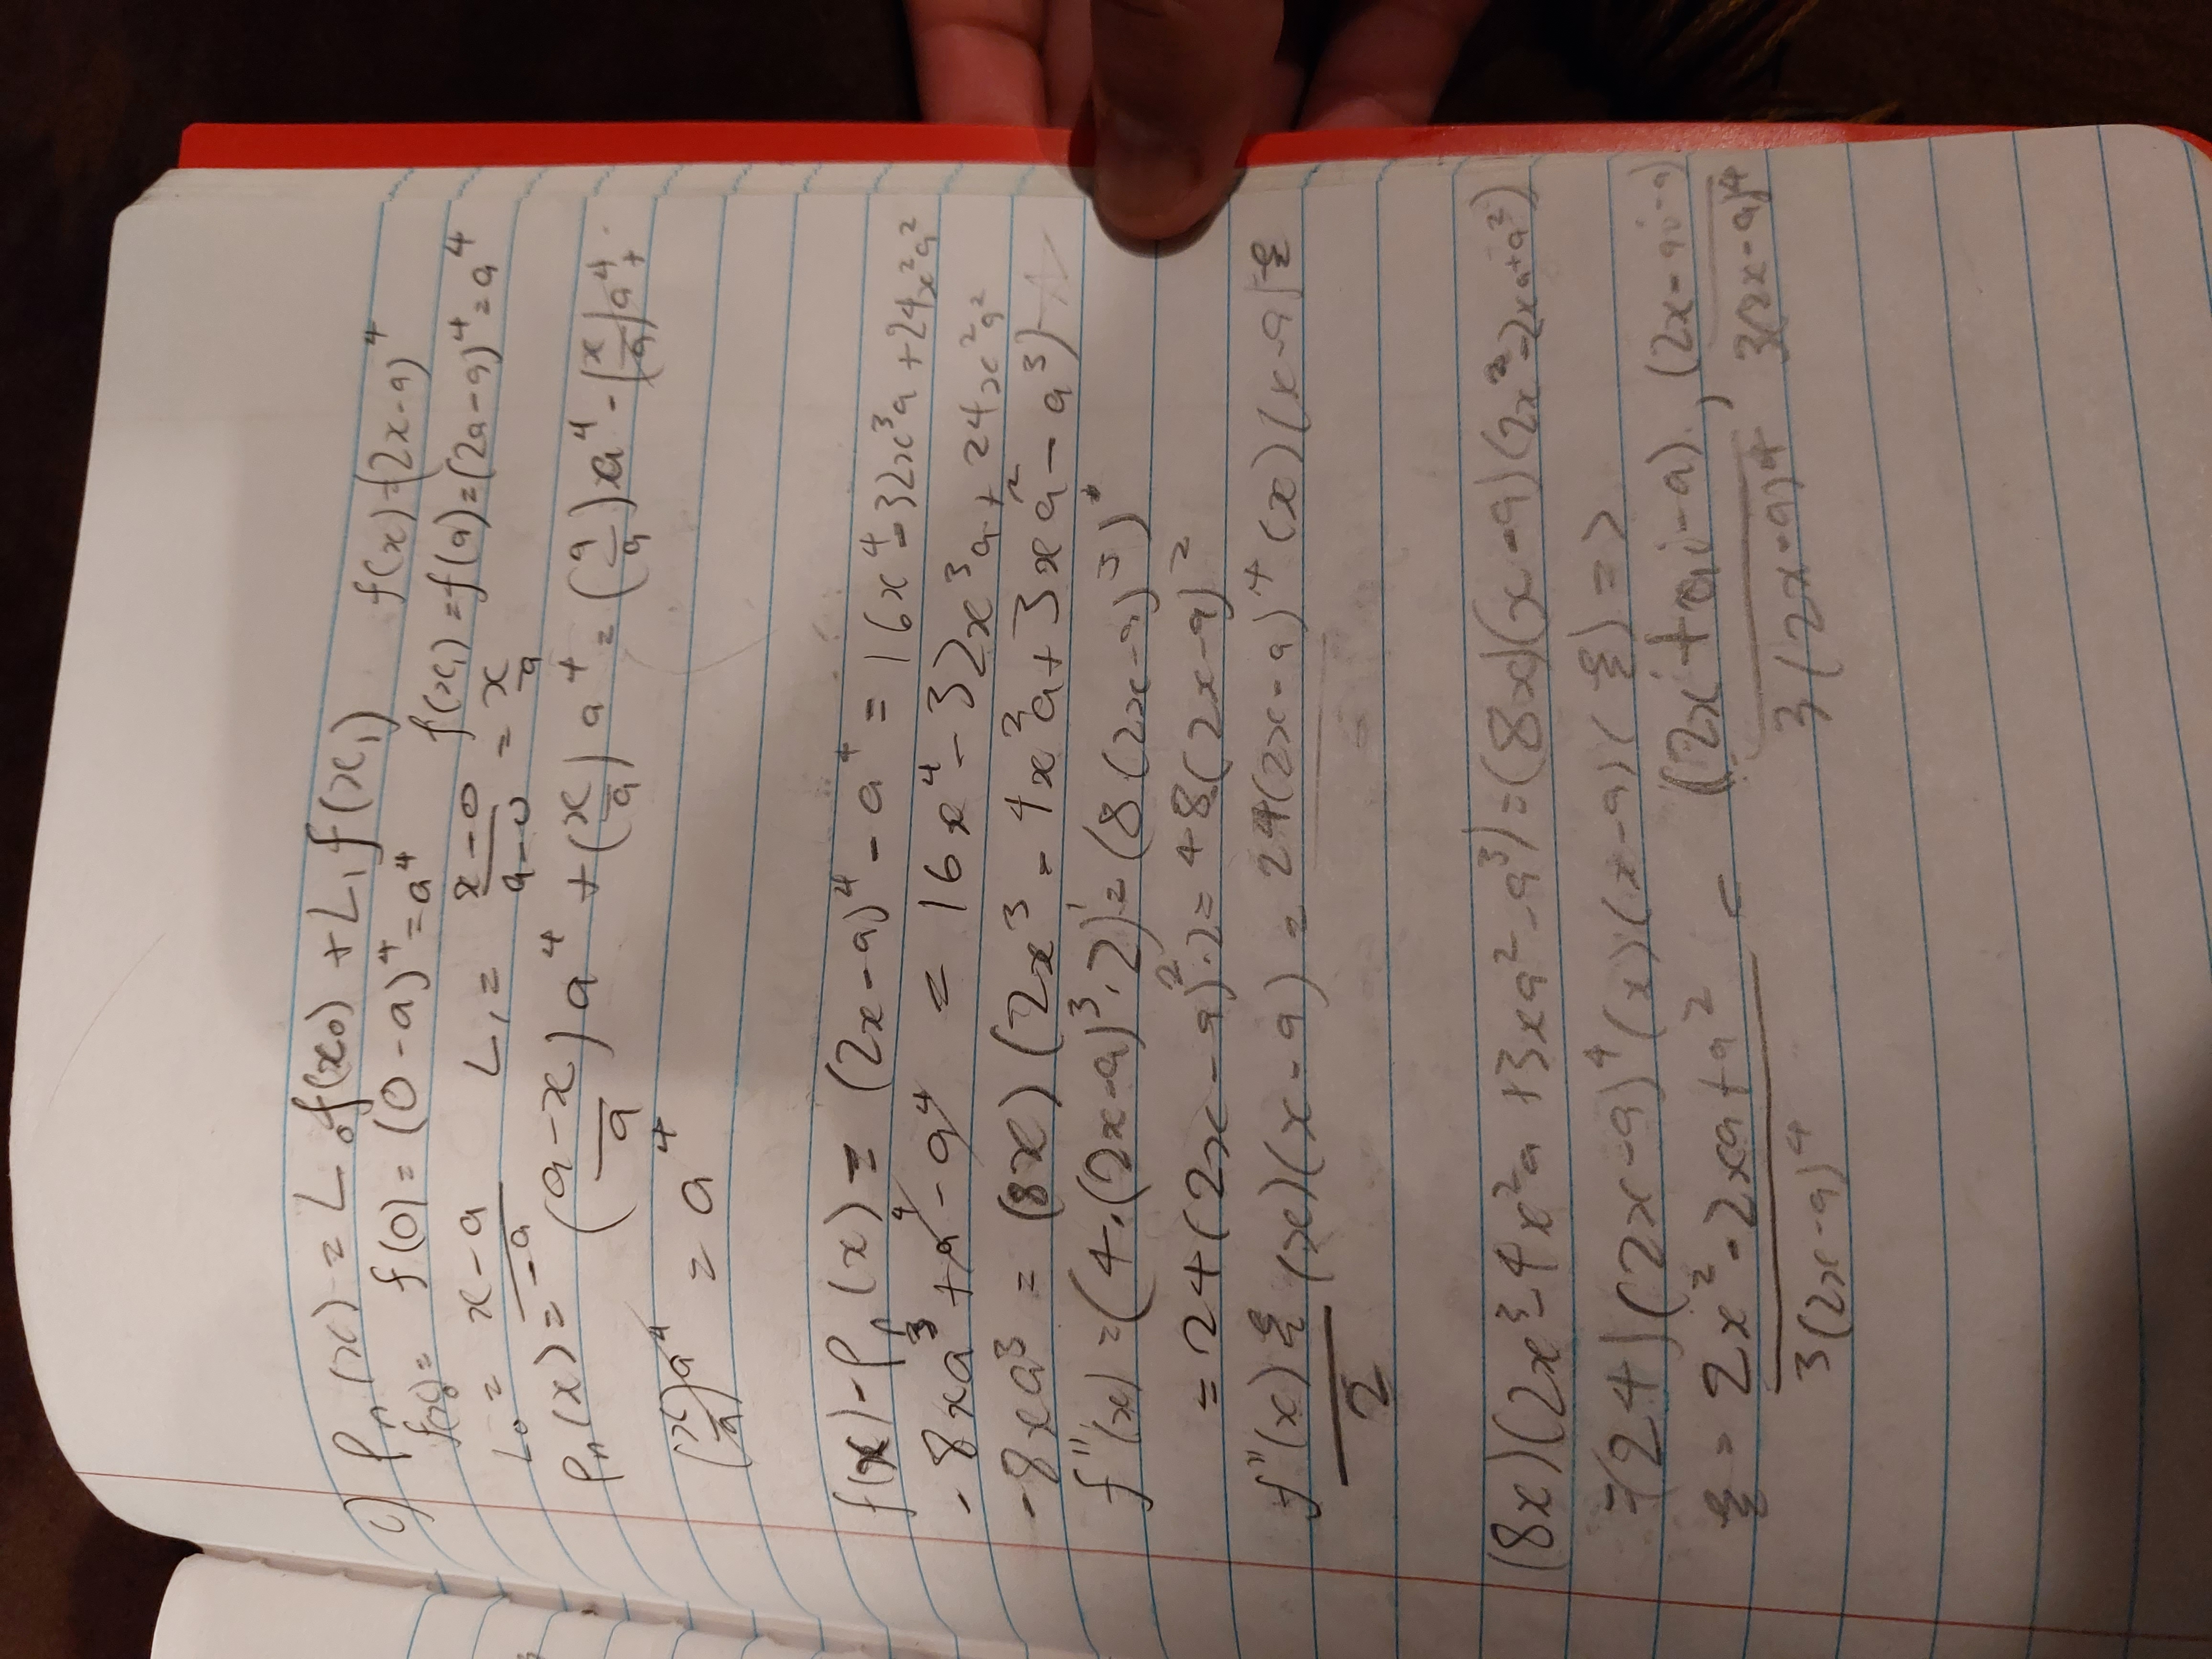 c) Pn(x) = L₀f(x₀) + L₁f(x₁) f(x)=(2x-a)⁴
f(x₀)= f(0) = (0-a)⁴=a⁴ f(x₁)=f(a)=(2a-a)⁴=a⁴
L₀ = (x-a)/(-a) L₁ = (x-0)/(a-0) = x/a
Pn(x) = ((a-x)/a)a⁴ + (x/a)a⁴ = (a/a)a⁴ - (x/a)a⁴ +
(x/a)a⁴ = a⁴
f(x)-Pn(x) = (2x-a)⁴ - a⁴ = 16x⁴-32x³a+24x²a²
-8xa³+a⁴-a⁴ = 16x⁴-32x³a+24x²a²
-8xa³ = (8x)(2x³-4x²a+3xa²-a³)
f''(x) =(4·(2x-a)³·2)'=(8(2x-a)³)'
=24(2x-a)²·2=48(2x-a)²
f''(x)ξ/2 (x)(x-a) = 24(2x-a)⁴(x)(x-a)ξ
(8x)(2x³-4x²a+3xa²-a³)=(8x)(x-a)(2x²-2xa+a²)
=(24)(2x-a)⁴(x)(x-a)(ξ)=>
ξ = (2x²-2xa+a²)/(3(2x-a)⁴) = (2x+ai-a)/(3(2x-a)⁴), (2x-ai-a)/(3(2x-a)⁴)